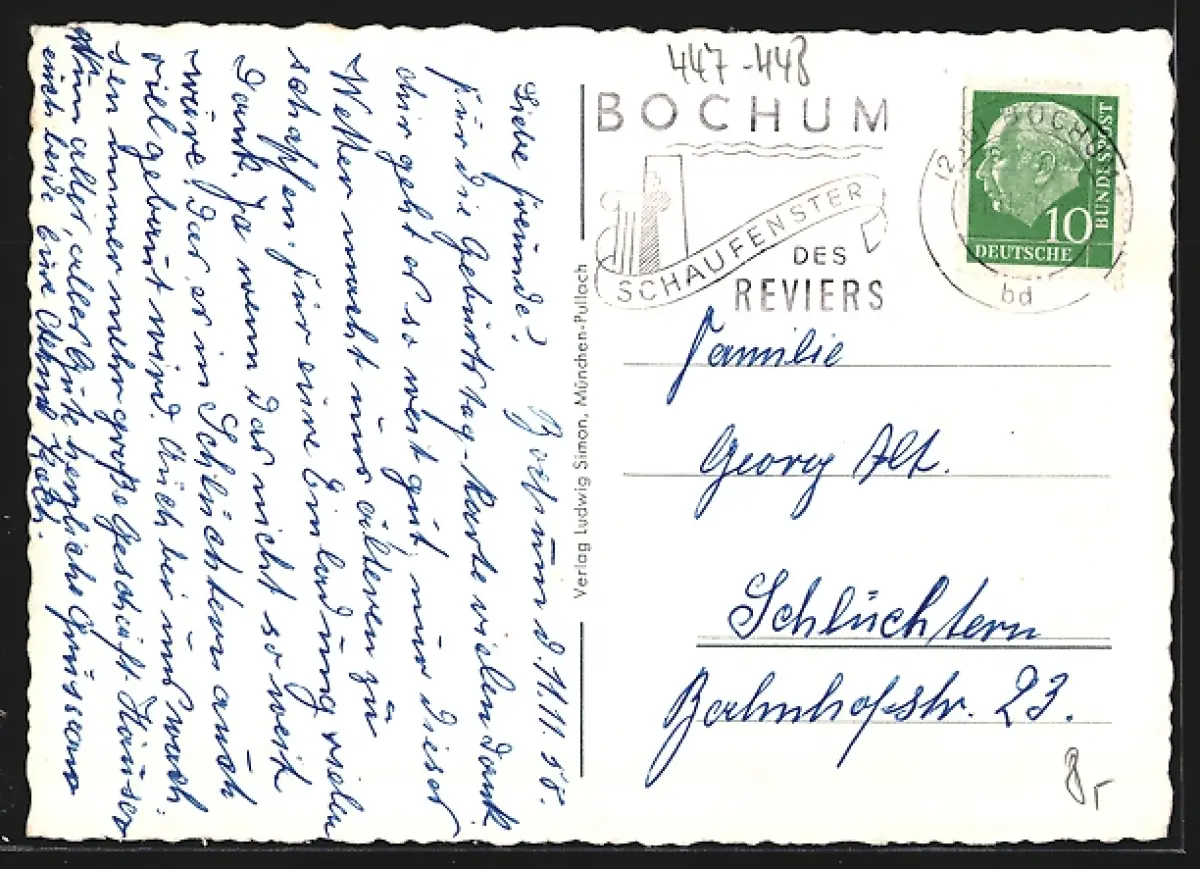 447-448
BOCHUM
SCHAUFENSTER
DES
REVIERS
BOCHUM
bd
10
DEUTSCHE
BUNDESPOST
Familie
Georg Alt.
Schlüchtern
Bahnhofstr. 23.
Verlag Ludwig Simon, München-Pullach
Bochum d. 11.11.58.
Liebe Freunde!
Für die Geburtstag-Karte vielen Dank
mir geht es so weit gut, nur dieses
Wetter macht uns älteren zu
schaffen. Für eine Einladung vielen
Dank. Ja wenn das nicht so weit
wäre. Das es in Schlüchtern auch
viel gebaut wird. Auch bei uns
sen immer mehr große Geschäft-Häuser
Nun alles, alles Gute herzliche Grüsse an
euch beide, eure